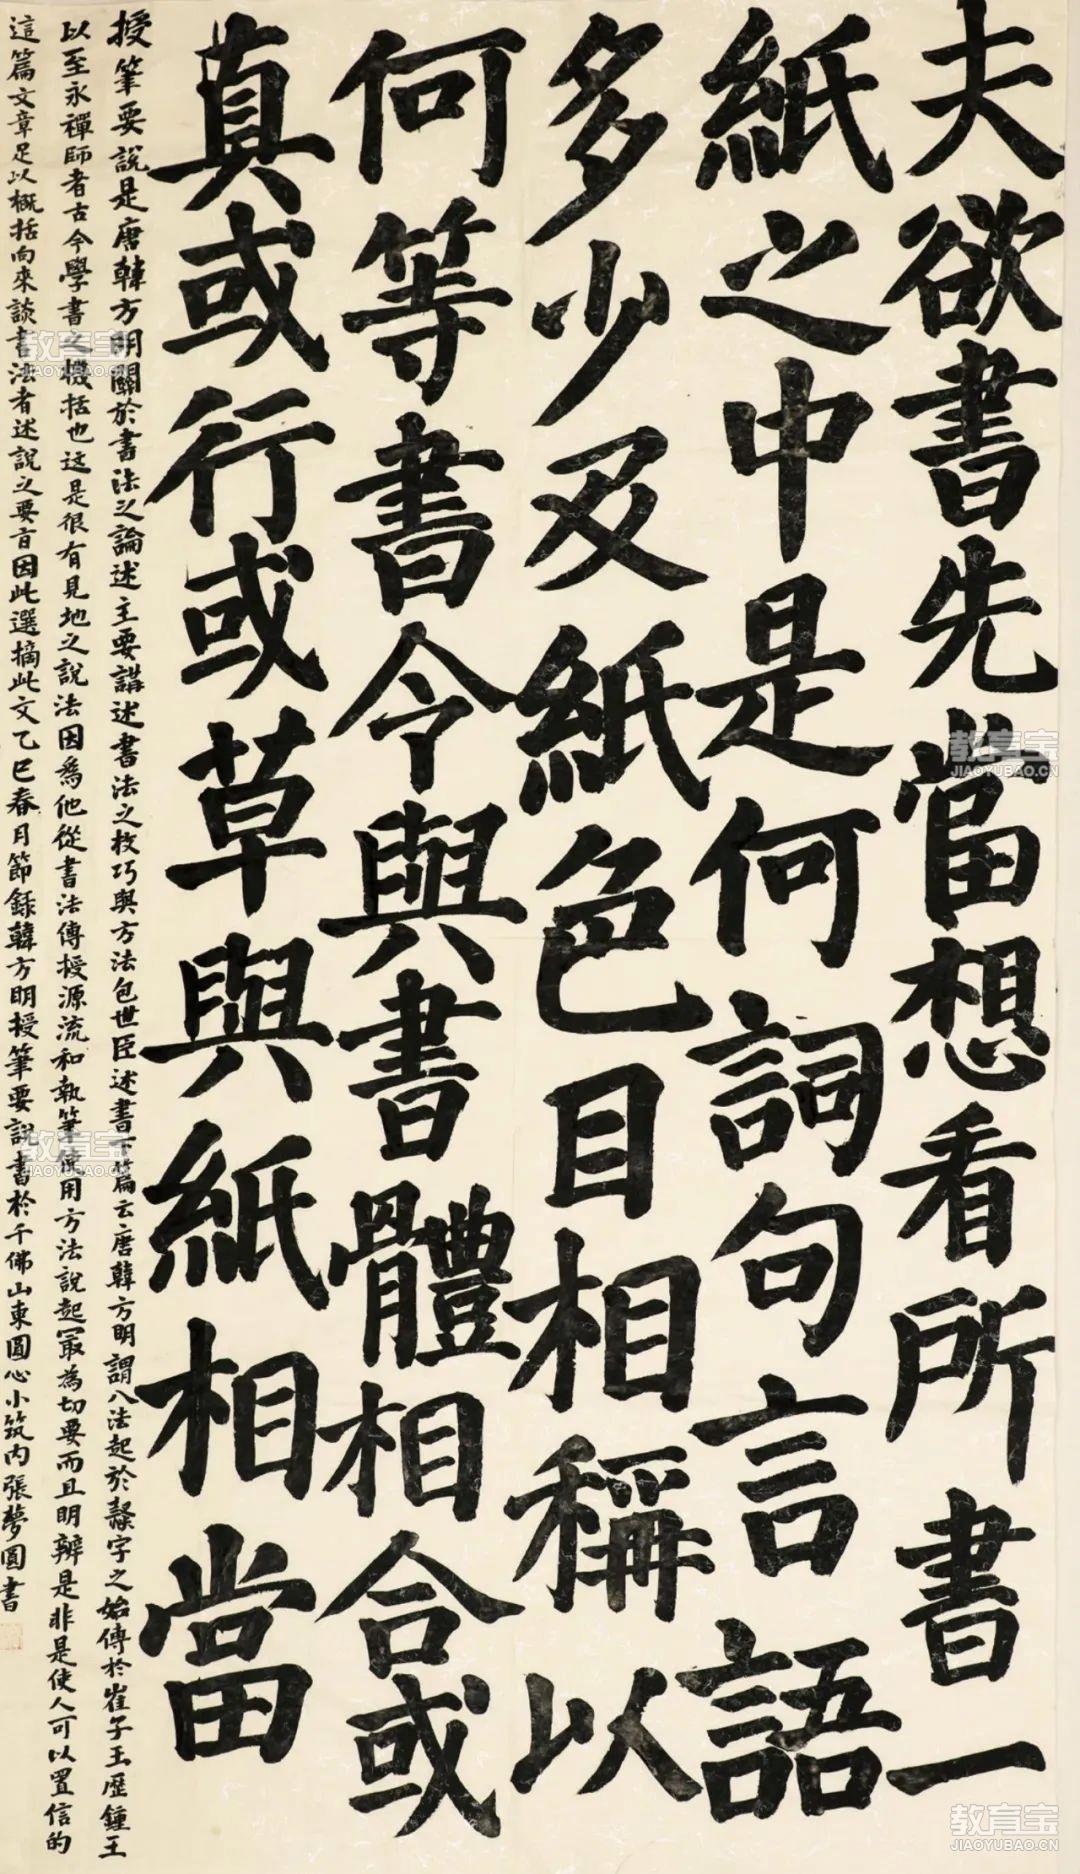 夫欲書先當想看所書一
紙之中是何詞句言語
多少及紙色目相稱以
何等書令與書體相合或
真或行或草與紙相當
授筆要說是唐韓方明關於書法之論述主要講述書法之技巧與方法包世臣述書下篇云唐韓方明謂八法起於隸字之始傳於崔子玉歷鍾王
以至永禪師者古今學書之機括也这是很有見地之說法因為他從書法傳授源流和執筆使用方法說起最為切要而且明辨是非是使人可以置信的
這篇文章足以概括向來談書法者述說之要旨因此選摘此文乙巳春月節錄韓方明授筆要說書於千佛山東圓心小筑內張夢圓書
教育宝
JIAOYUBAO.CN
教育宝
JIAOYUBAO.CN
教育宝
JIAOYUBAO.CN
教育宝
JIAOYUBAO.CN